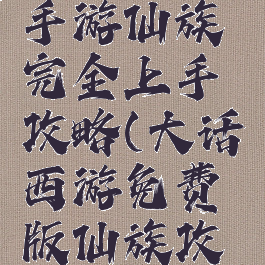 手游仙族
完全上手
攻略(大话
西游免费
版仙族攻